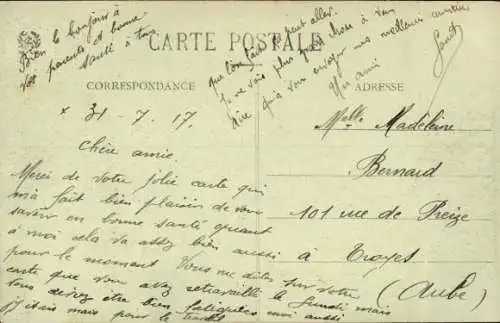 CARTE POSTALE
CORRESPONDANCE
ADRESSE
31-7-17.
Chère amie.
Merci de votre jolie carte qui
m'a fait bien plaisir de vous
savoir en bonne santé quant
à moi cela va assez bien aussi
pour le moment. Vous me dites sur votre
carte que vous avez retravaillé le lundi mais
vous deviez être bien fatiguées moi aussi
j'y étais mais pour le
que l'on peut aller.
Je ne vois plus grand chose à vous
dire qu'à vous envoyer mes meilleures amitiés
Un ami
Bien le bonjour à
vos parents et bonne
santé à tous
Melle Madeleine
Bernard
101 rue de Preize
à Troyes
(Aube)